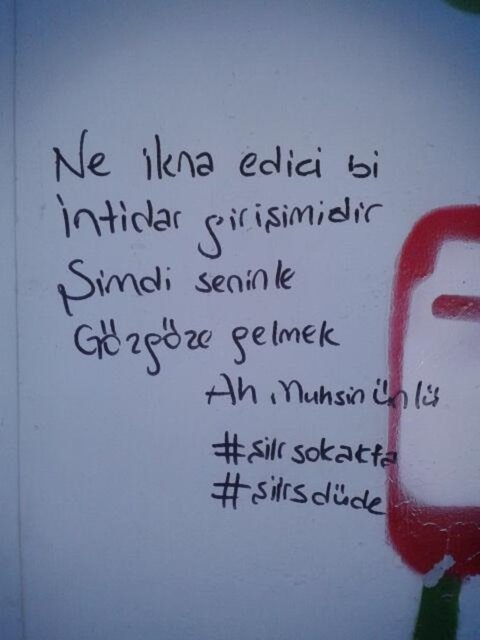 Ne ikna edici bi
intidar girişimidir
Şimdi seninle
Gözgöze gelmek
Ah Muhsin Ünlü
#şiirsokakta
#şiirsdüde